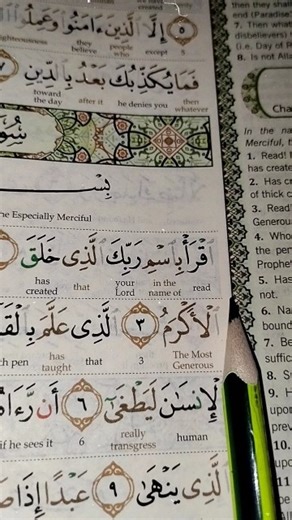 إِلَّا الَّذِينَ ءَامَنُوا وَعَمِلُوا
righteousness they believe people who except 5
فَمَا يُكَذِّبُكَ بَعْدُ بِالدِّينِ ٧
toward the day after it he denies you then whatever
سُو
بِسْ
the Especially Merciful
اقْرَأْ بِاسْمِ رَبِّكَ الَّذِى خَلَقَ
has created that your Lord in the name of read
الْأَكْرَمُ ٣ الَّذِى عَلَّمَ بِالْقَ
ch pen has taught that 3 The Most Generous
الْإِنسَٰنَ لَيَطْغَىٰٓ ٦ أَن رَّءَاهُ
if he sees it 6 really transgress human
الَّذِى يَنْهَىٰ ٩ عَبْدًا إِذَا صَ
then they shall
end (Paradise)
7. Then what
disbelievers)
(i.e. Day of R
8. Is not Alla
Cha
In the na
Merciful, t
1. Read!
has create
2. Has cr
of thick c
3. Read!
Generou
4. Who
the pen
Prophe
5. Has
not.
6. Na
bound
7. Be
suffic
8. S
9. H
upo
pre
10.
upo
11.